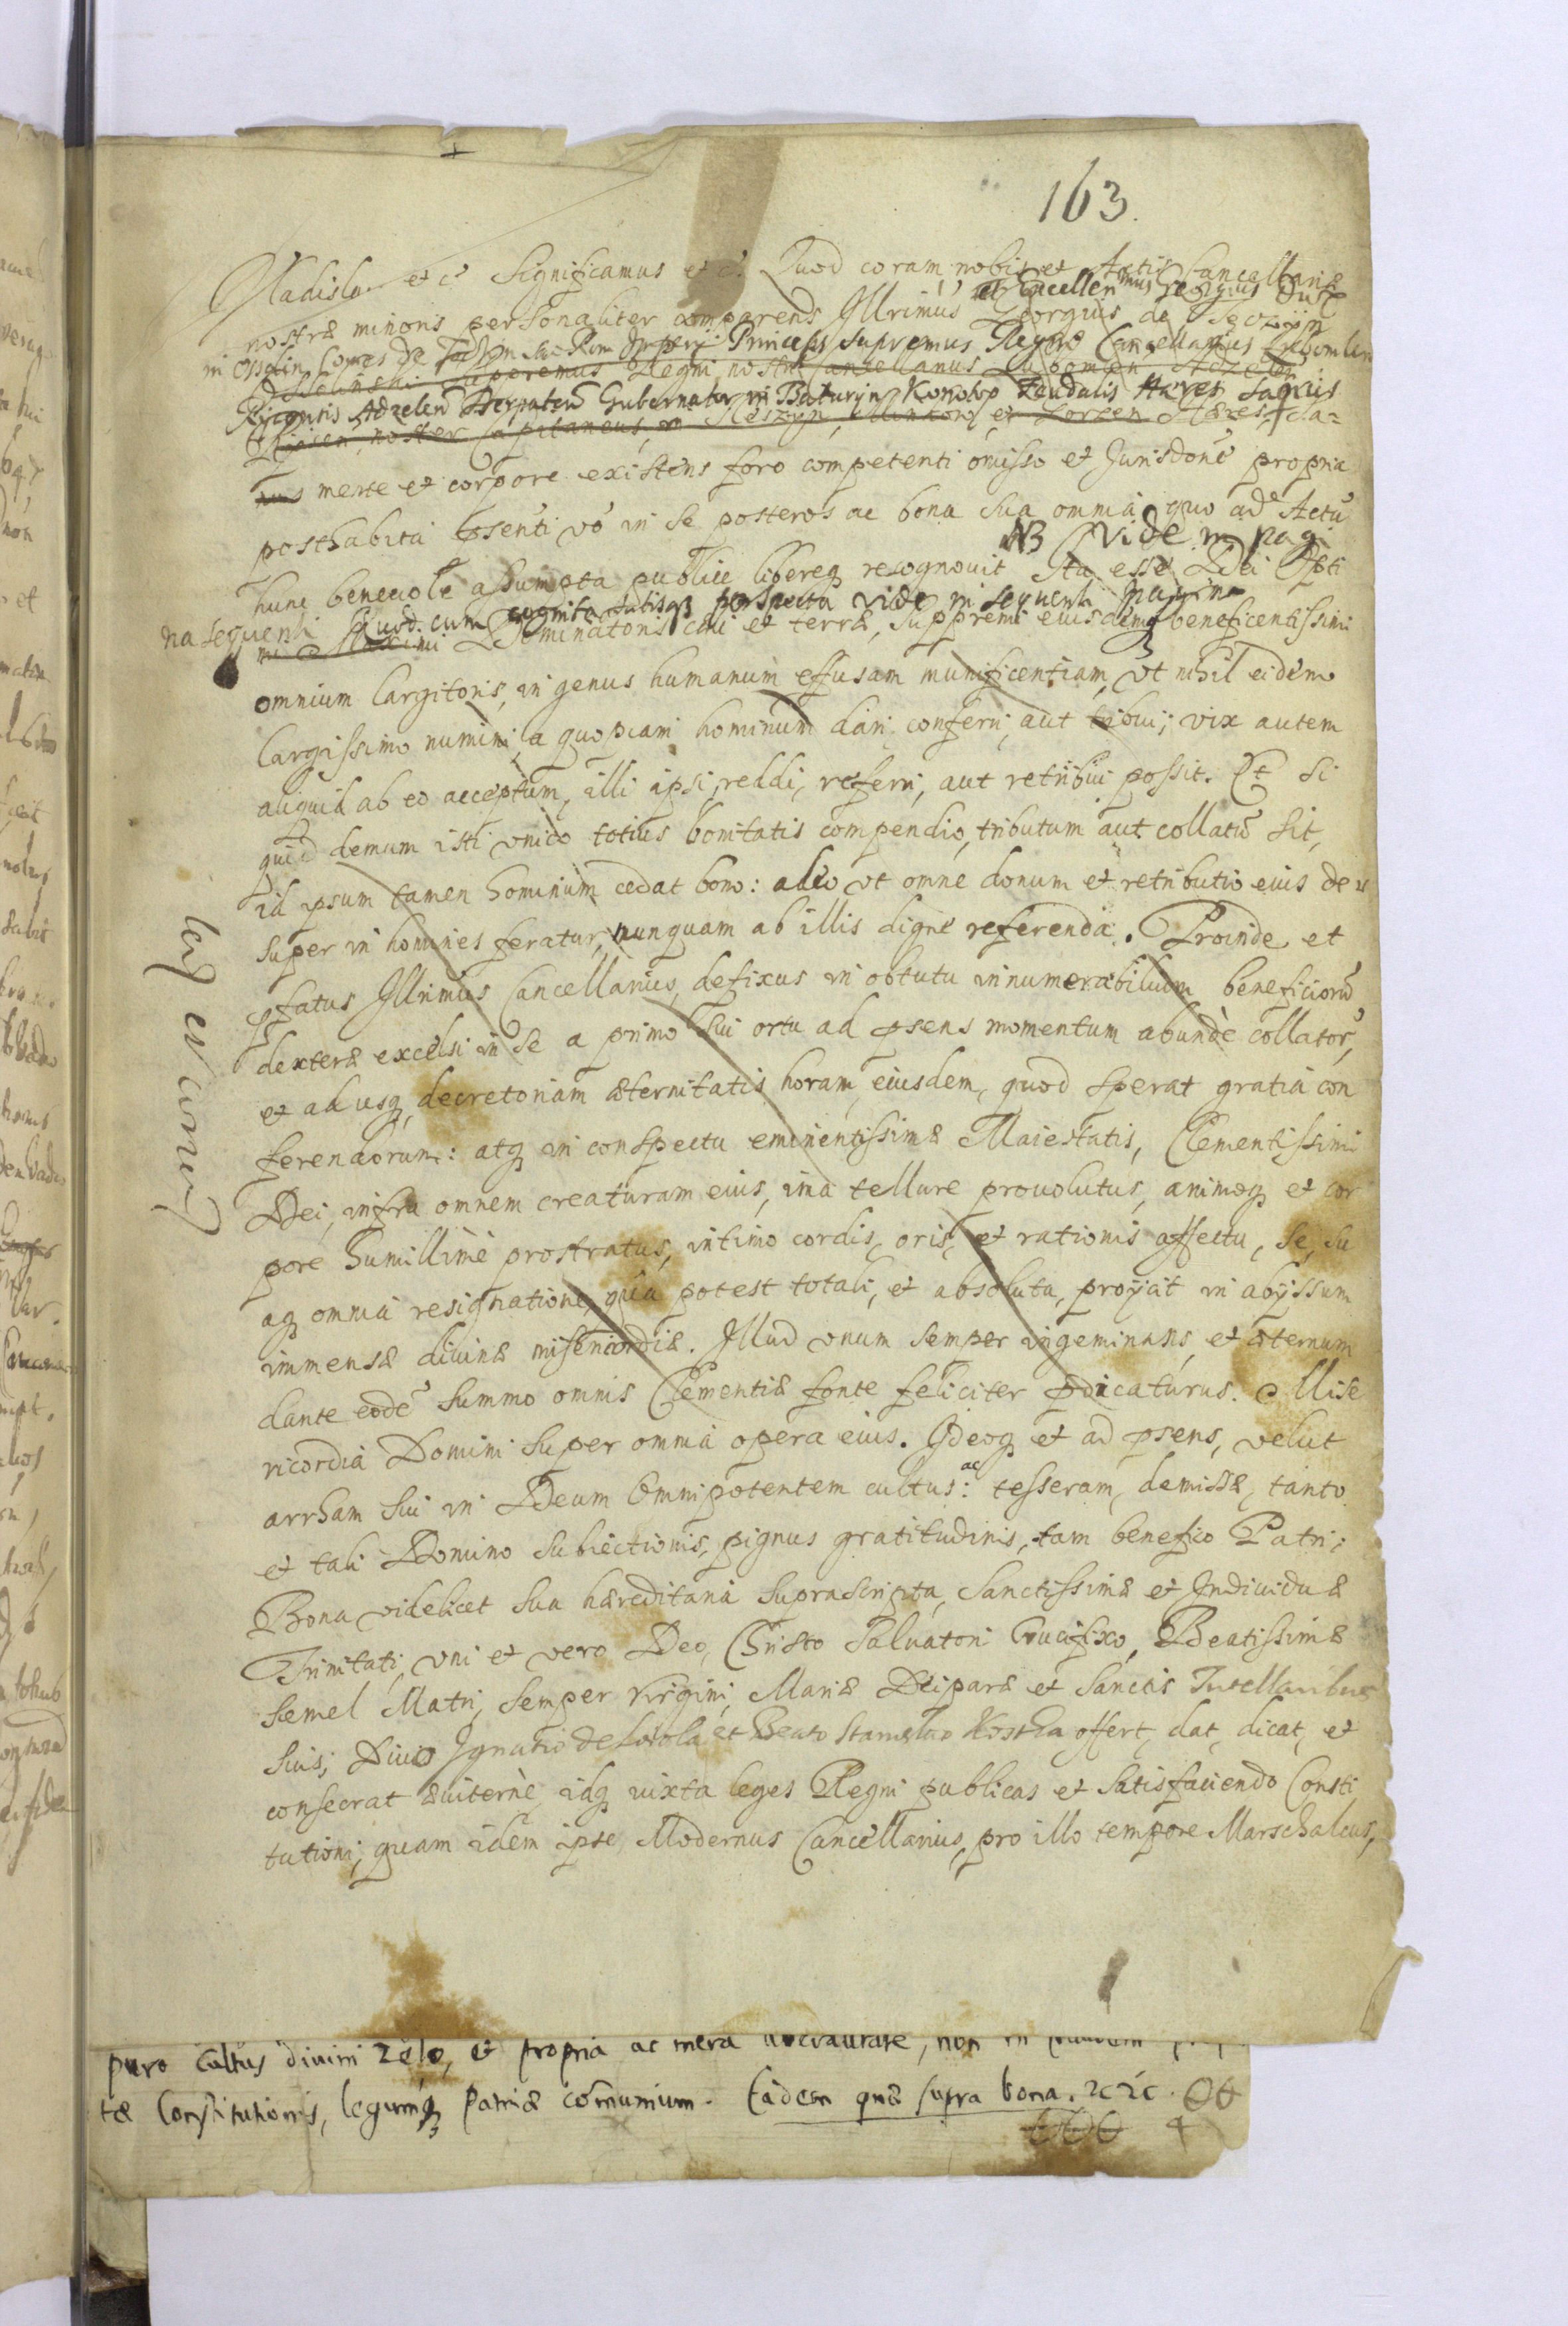 163.
Vladislaus etc Significamus etc. Quod coram nobis et Actis Cancellariæ
et Excellenmus Georgius Dux
nostræ minoris personaliter comparens Illrimus Georgius de Tęczyn
in Ossolin Comes de Tęczyn Sac Rom Imperij Princeps Supremus Regni Cancellarius Lubomlen
Ossolinski Supremus Regni nostri Cancellarius Lubomlen Adzelen
Ryicensis Adzelen Derpaten Gubernator in Baturyn Konotop Feudalis Hæres Sanus
noster Capitaneus, in et Hæres, Sa-
nus mente et corpore existens foro competenti omisso et Jurisdone propria
posthabita bsenti vo in se posteros ac bona sua omnia quo ad Actu
NB Vide in pagi
hunc beneuole assumpta publice libereq recognovit Ita esse Dei Opti
na sequenti Quod cum cognita satisq perspecta vide in sequenti pagina
mi Maximi Dominatoris cæli et terræ, supremi eiusdemq beneficentissimi
omnium largitoris, in genus humanum effusam munificentiam, vt nihil eidem
largissimo numini, a quopiam hominum dari, conferri, aut tribui; vix autem
aliquid ab eo acceptum, illi ipsi, reddi, referri, aut retribui possit. Et si
quid demum isti vnico totius bonitatis compendio, tributum aut collatū sit,
id ipsum tamen hominum cedat bono: adeo vt omne donum et retributio eius de
super in homines feratur, nunquam ab illis digne referenda. Proinde et
pfatus Illrimus Cancellarius, defixus in obtutu innumerabilium beneficiorū
dexteræ excelsi in se a primo sui ortu ad psens momentum abunde collator,
et ad usq decretoriam æternitatis horam, eiusdem, quod sperat gratia con
ferendorum: atq in conspectu eminentissimæ Maiestatis, Clementissimi
Dei, infra omnem creaturam eius, ima tellure prouolutus, animoq et cor
pore humillimè prostratus, intimo cordis, oris, et rationis affectu, se, su
aq omnia resignatione, qua potest totali, et absoluta, proijcit in abyssum
immensæ diuinæ misericordiæ. Illud vnum semper ingeminans, et æternum
dante eodē summo omnis Clementiæ fonte feliciter pdicaturus. Mise
ricordia Domini super omnia opera eius. Ideoq et ad psens, velut
arrham sui in Deum Omnipotentem cultus: ac tesseram, demissæ, tanto
et tali Domino subiectionis, pignus gratitudinis, tam benefico Patri;
Bona videlicet sua hæreditaria suprascripta, Sanctissimæ et Indiuiduæ
Trinitati, vni et vero Deo, Christo Saluatori Crucifixo, Beatissimæ
semel Matri, semper Virgini, Mariæ Deiparæ et Sanctis Tutellaribus
suis; Diuo Ignatio de Loiola et Beato Stanislao Kostka offert, dat, dicat, et
consecrat æuiternè, idq iuxta leges Regni publicas et satisfaciendo Consti
tutioni, quam idem ipse Modernus Cancellarius, pro illo tempore Marschalcus,
puro cultus diuini zelo, et propria ac mera
tæ Constitutionis, legumq Patriæ comunium. Eadem quæ supra bona. etc etc.